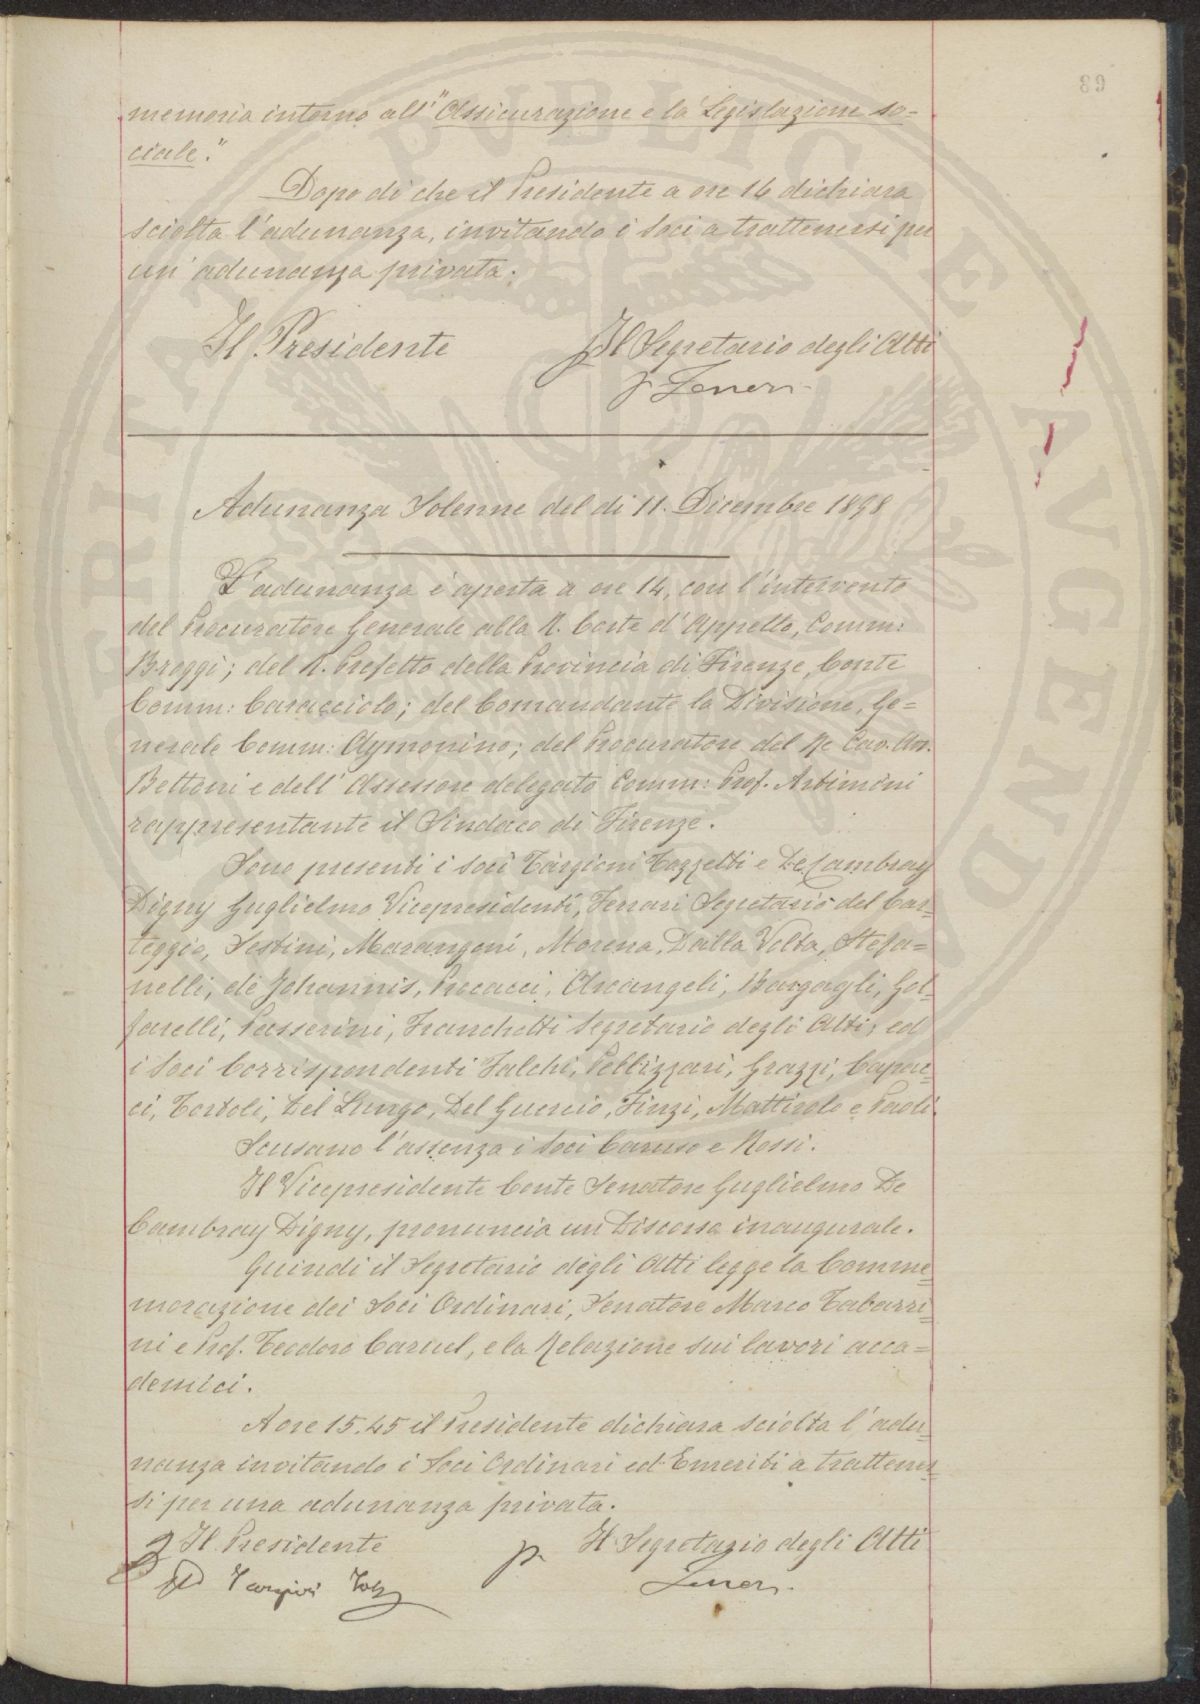 89
memoria intorno all'"Assicurazione e la Legislazione so=
ciale."
Dopo di che il Presidente a ore 14 dichiara
sciolta l'adunanza, invitando i Soci a trattenersi per
un' adunanza privata.
Il Presidente
p Il Segretario degli Atti
Adunanza Solenne del di 11. Dicembre 1898
L'adunanza è aperta a ore 14, con l'intervento
del Procuratore Generale alla R. Corte d'Appello, Comm:
Broggi; del R. Prefetto della Provincia di Firenze, Conte
Comm: Caracciolo; del Comandante la Divisione, Ge=
nerale Comm: Aymonino; del Procuratore del Re Cav. Avv.
Bettoni e dell'Assessore delegato Comm: Prof. Artimini
rappresentante il Sindaco di Firenze.
Sono presenti i Soci Targioni Tozzetti e De Cambray
Digny Guglielmo Vicepresidenti, Ferrari Segretario del Car=
teggio, Sestini, Marangoni, Morena, Dalla Volta, Stefa=
nelli, de Johannis, Procacci, Arcangeli, Bargagli, Gol=
farelli, Passerini, Franchetti Segretario degli Atti, ed
i Soci Corrispondenti Falchi, Pellizzari, Grazzi, Capac=
ci, Tortoli, Del Lungo, Del Guercio, Finzi, Mattirolo e Paoli.
Scusano l'assenza i Soci Caruso e Rossi.
Il Vicepresidente Conte Senatore Guglielmo De
Cambray Digny, pronuncia un Discorso inaugurale.
Quindi il Segretario degli Atti legge la Comme=
morazione dei Soci Ordinari, Senatore Marco Tabarri=
ni e Prof. Teodoro Caruel, e la Relazione sui lavori acca=
demici.
A ore 15.45 il Presidente dichiara sciolta l'adu=
nanza invitando i Soci Ordinari ed Emeriti a trattener=
si per una adunanza privata.
Il Presidente
p. Il Segretario degli Atti
Targioni Tozz